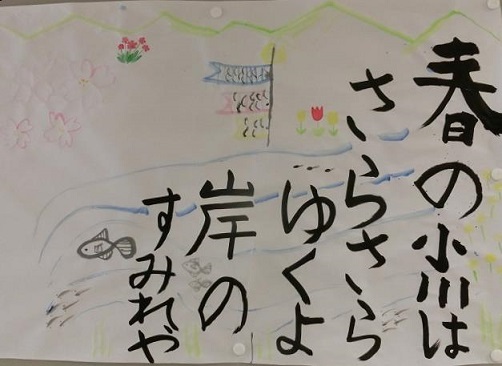 春の小川は
さらさら
ゆくよ
岸の
すみれや